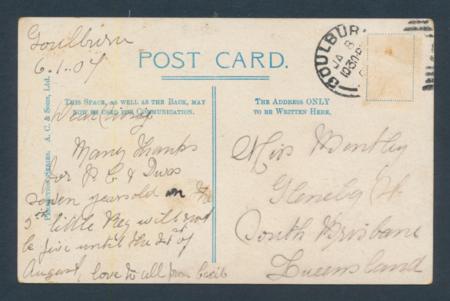 Goulburn
6.1.07
POST CARD.
GOULBURN
JA 8
1030
A. C. & Sons, Ltd.
This Space, as well as the Back, may
now be used for Communication.
The Address ONLY
to be Written Here.
Many Thanks
for P C I was
seven years old on the
3rd little Reg will not
be five until the 21st of
August, love to all from
Miss Bentley
St
South Brisbane
Queensland